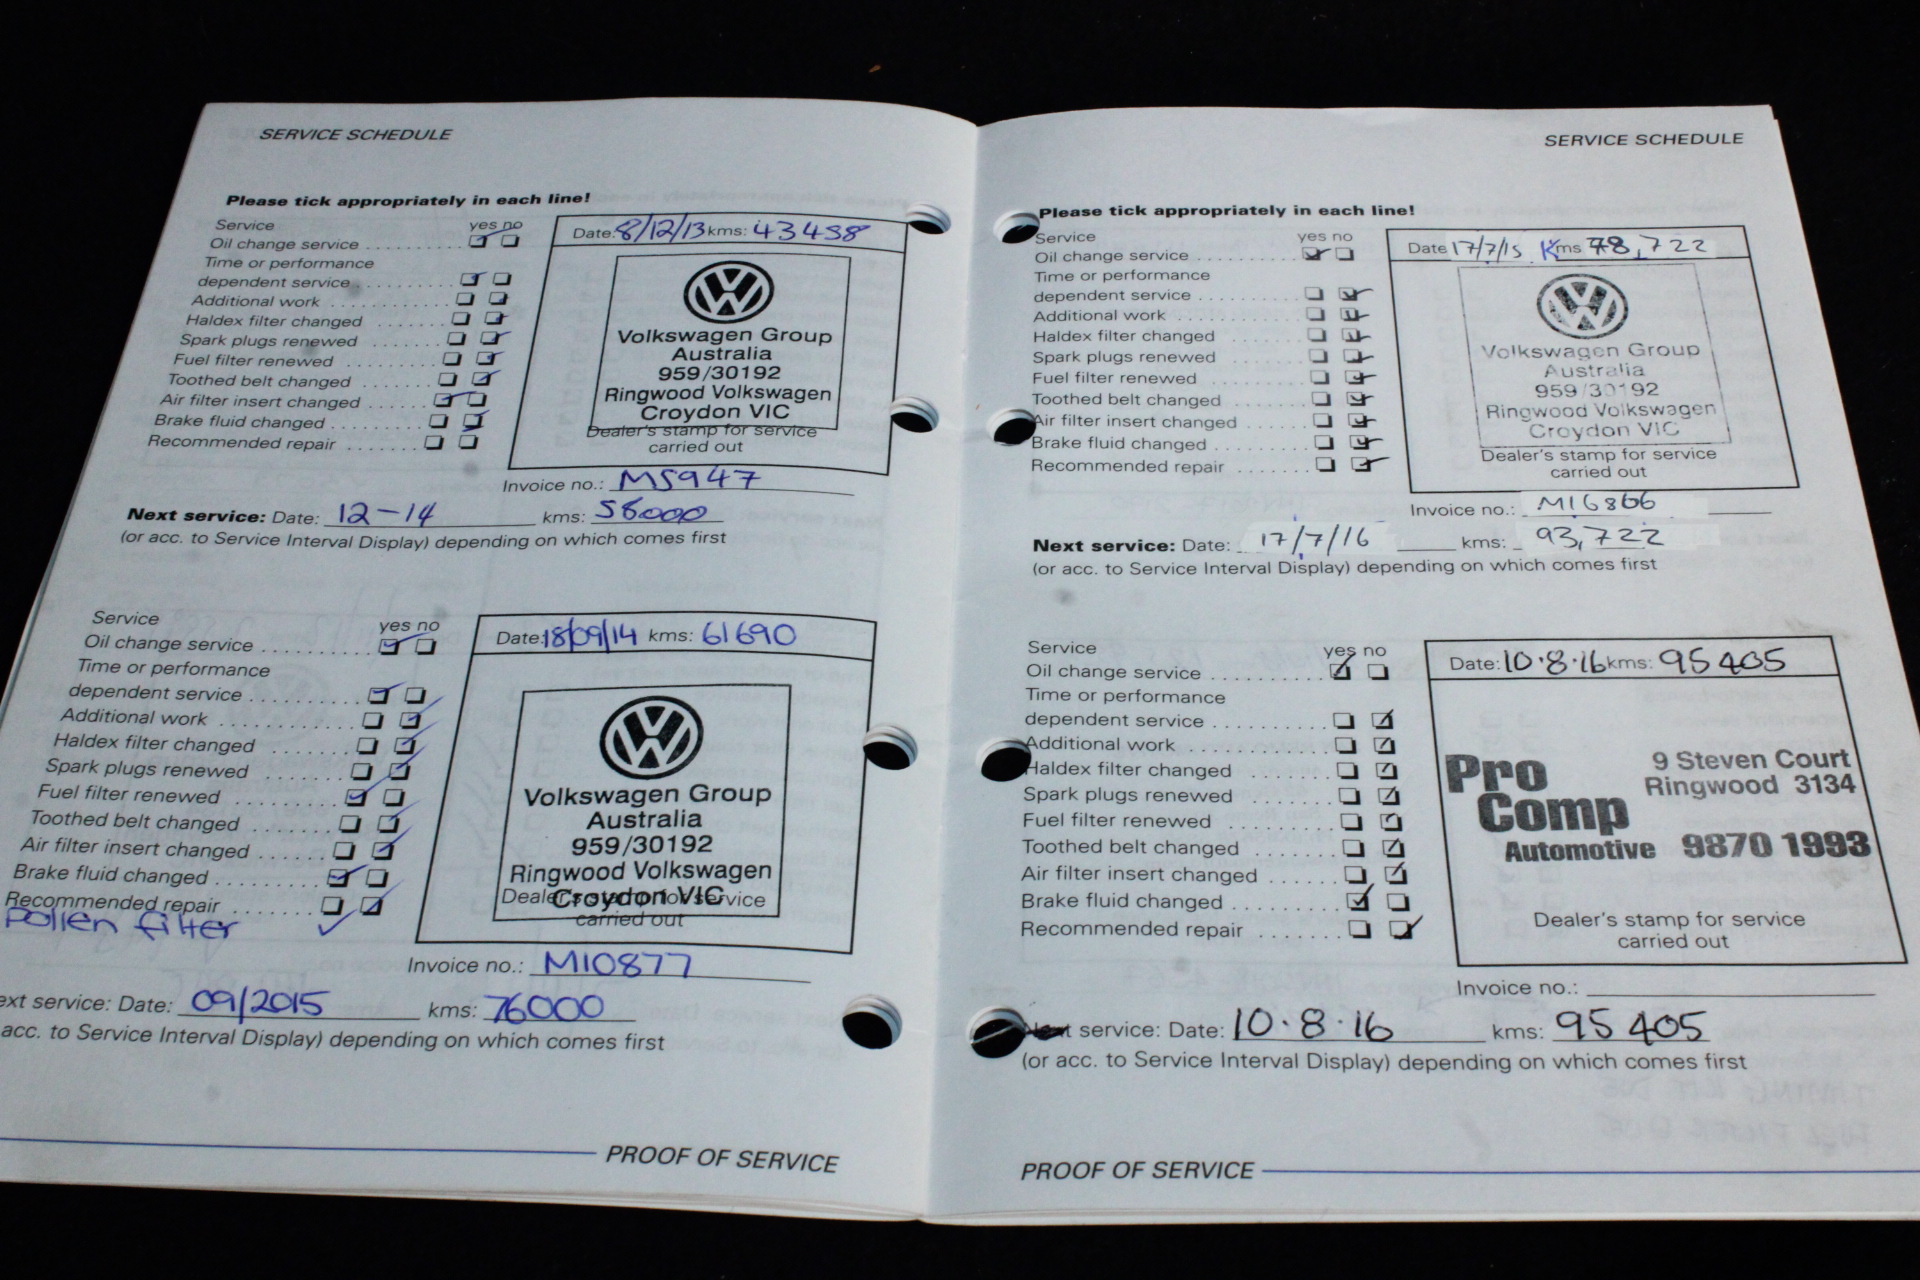 SERVICE SCHEDULE
Please tick appropriately in each line!
Service yes no
Oil change service ..........
Time or performance
dependent service ..........
Additional work ..........
Haldex filter changed .......
Spark plugs renewed .......
Fuel filter renewed .........
Toothed belt changed .......
Air filter insert changed ......
Brake fluid changed ........
Recommended repair .......
Date: 8/12/13 kms: 43458
Volkswagen Group
Australia
959/30192
Ringwood Volkswagen
Croydon VIC
Dealer's stamp for service
carried out
Invoice no.: M5947
Next service: Date: 12-14 kms: 58000
(or acc. to Service Interval Display) depending on which comes first
Service yes no
Oil change service ..........
Time or performance
dependent service ..........
Additional work ..........
Haldex filter changed .......
Spark plugs renewed .......
Fuel filter renewed .........
Toothed belt changed .......
Air filter insert changed ......
Brake fluid changed ........
Recommended repair .......
Pollen filter ✓
Date: 18/09/14 kms: 61690
Volkswagen Group
Australia
959/30192
Ringwood Volkswagen
Croydon VIC
Dealer's stamp for service
carried out
Invoice no.: M10877
ext service: Date: 09/2015 kms: 76000
acc. to Service Interval Display) depending on which comes first
PROOF OF SERVICE
SERVICE SCHEDULE
Please tick appropriately in each line!
Service yes no
Oil change service ..........
Time or performance
dependent service ..........
Additional work ..........
Haldex filter changed .......
Spark plugs renewed .......
Fuel filter renewed .........
Toothed belt changed .......
Air filter insert changed ......
Brake fluid changed ........
Recommended repair .......
Date 17/7/15 Kms 78,722
Volkswagen Group
Australia
959/30192
Ringwood Volkswagen
Croydon VIC
Dealer's stamp for service
carried out
Invoice no.: M16866
Next service: Date: 17/7/16 kms: 93,722
(or acc. to Service Interval Display) depending on which comes first
Service yes no
Oil change service ..........
Time or performance
dependent service ..........
Additional work ..........
Haldex filter changed .......
Spark plugs renewed .......
Fuel filter renewed .........
Toothed belt changed .......
Air filter insert changed ......
Brake fluid changed ........
Recommended repair .......
Date: 10·8·16 kms: 95405
Pro Comp
Automotive
9 Steven Court
Ringwood 3134
9870 1993
Dealer's stamp for service
carried out
Invoice no.:
service: Date: 10·8·16 kms: 95405
(or acc. to Service Interval Display) depending on which comes first
PROOF OF SERVICE